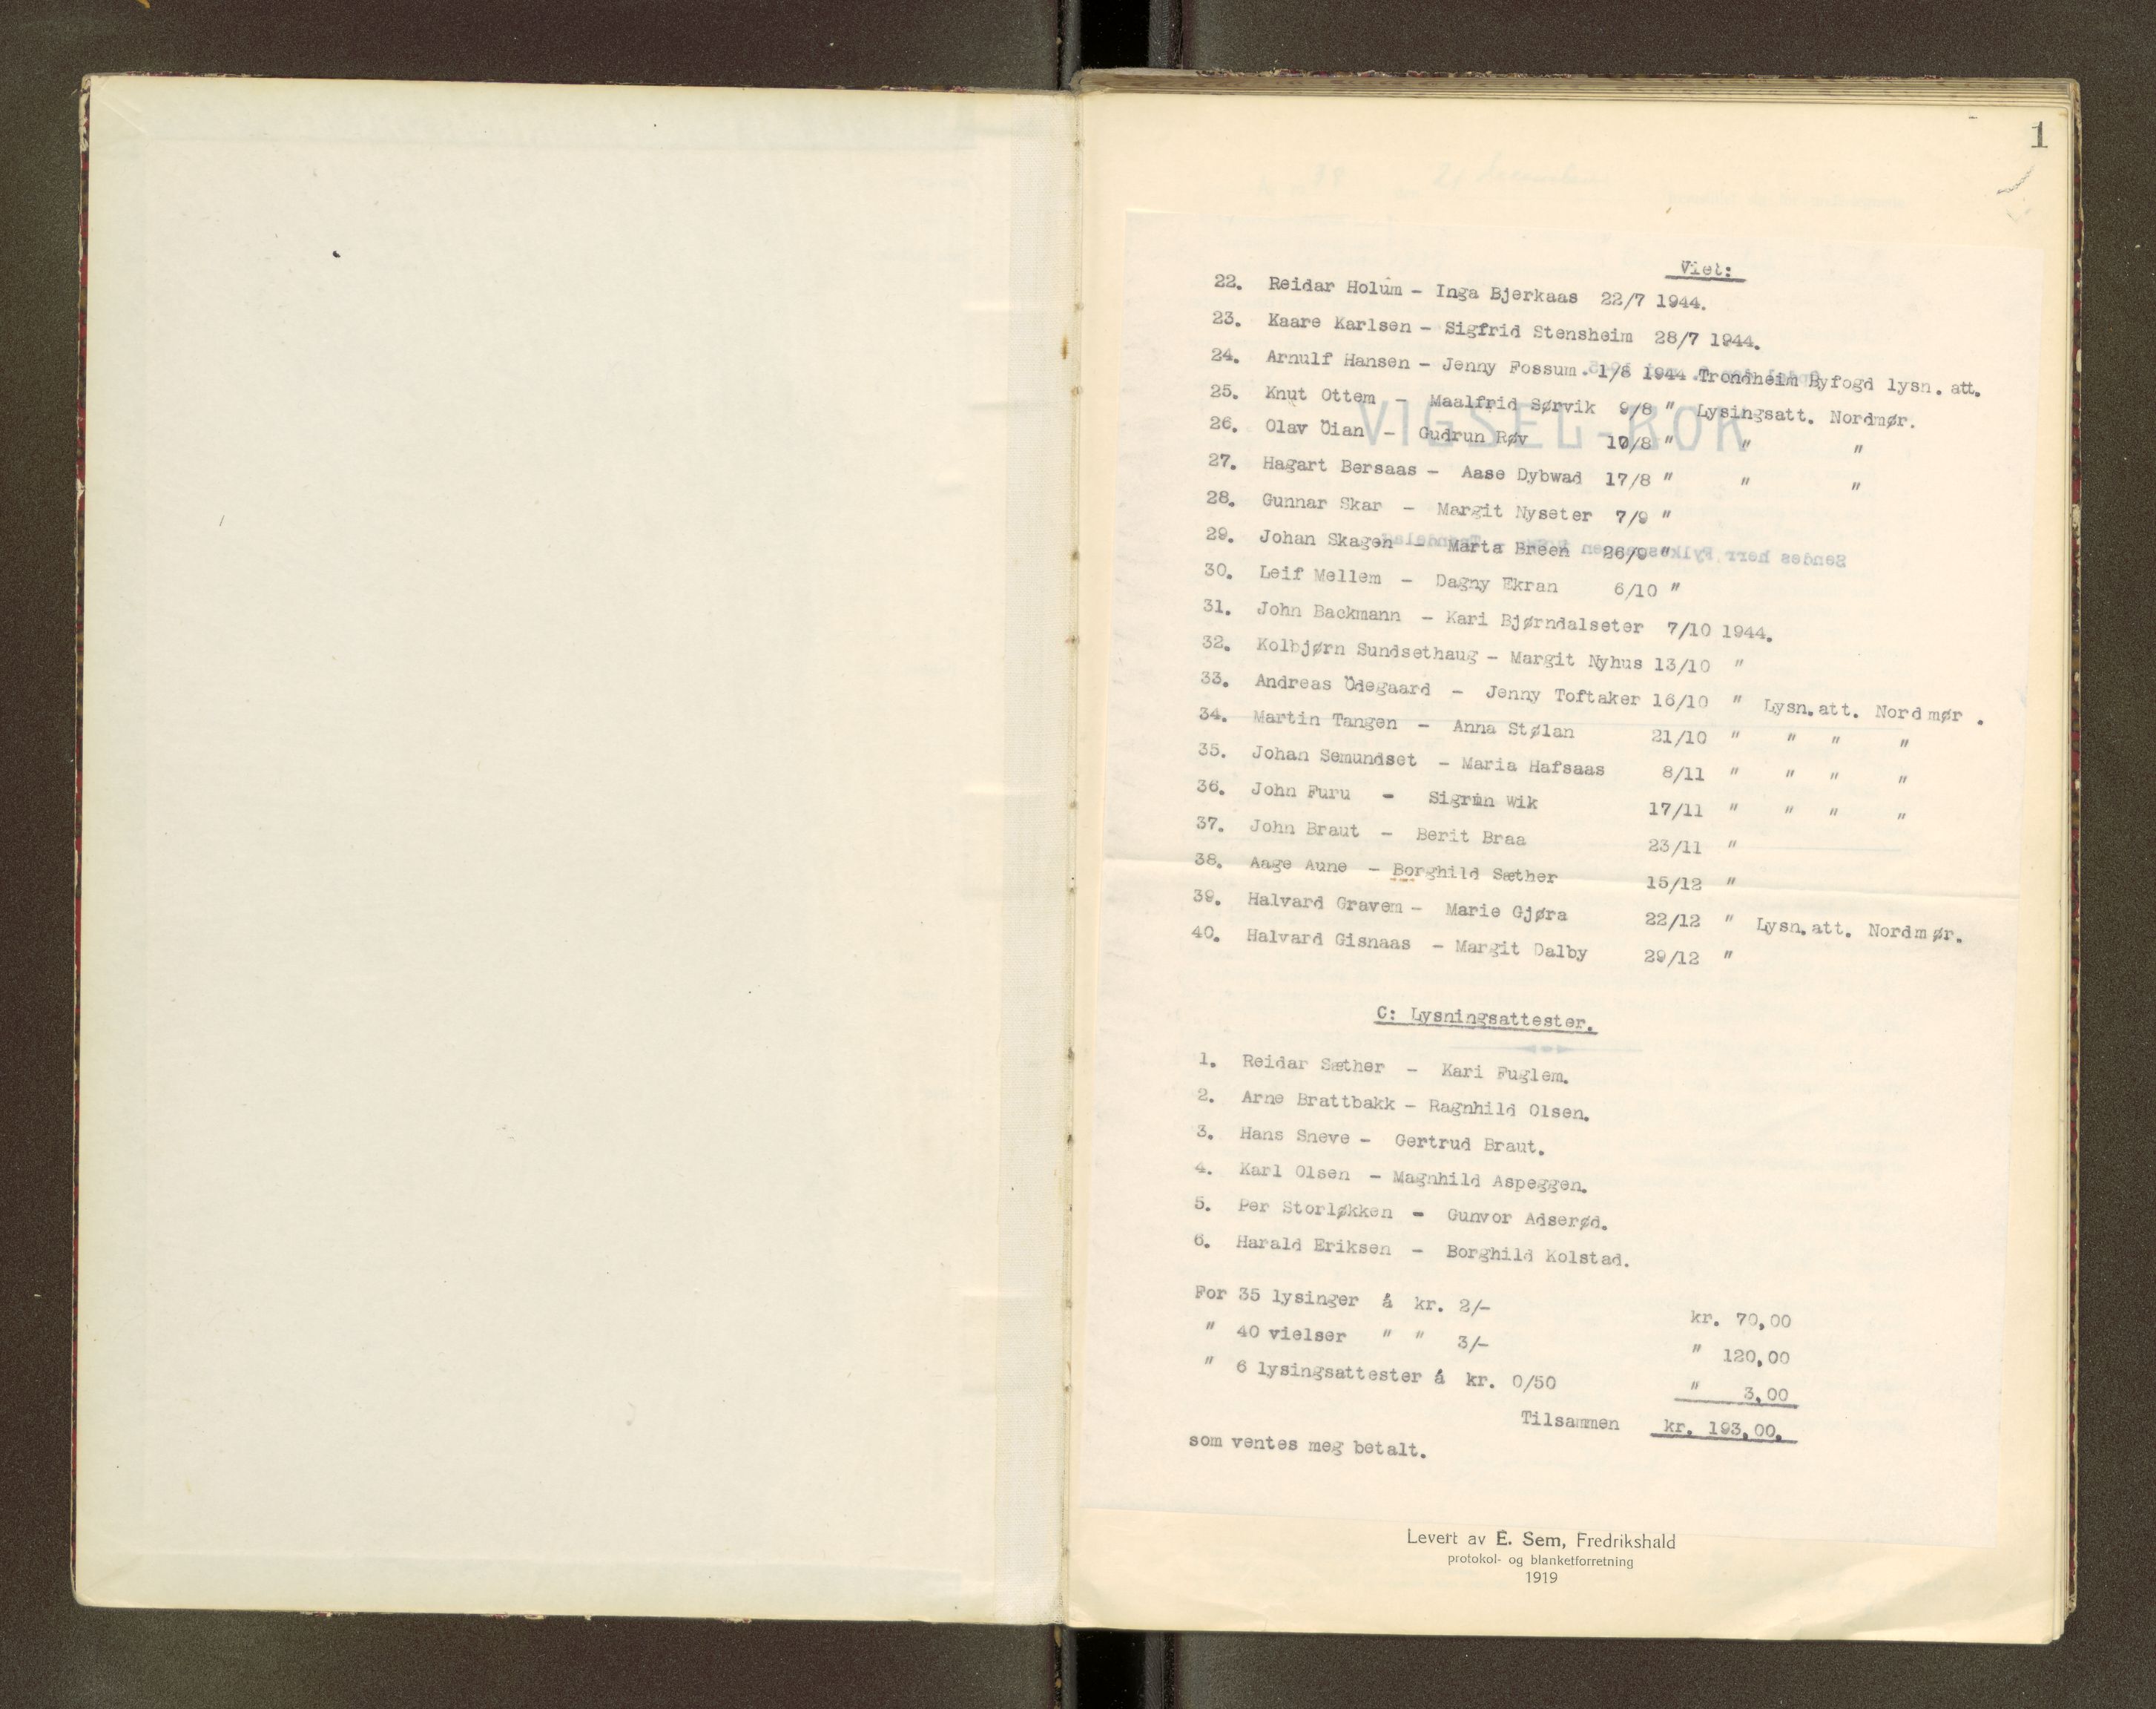 1
Viet:
22. Reidar Holum - Inga Bjerkaas 22/7 1944.
23. Kaare Karlsen - Sigfrid Stensheim 28/7 1944.
24. Arnulf Hansen - Jenny Fossum. 1/8 1944 Trondheim Byfogd lysn. att.
25. Knut Ottem - Maalfrid Sørvik 9/8 " Lysingsatt. Nordmør.
VIGSEL-BOK
26. Olav Öian - Gudrun Røv 10/8 " " "
27. Hagart Bersaas - Aase Dybwad 17/8 " " "
28. Gunnar Skar - Margit Nyseter 7/9 "
29. Johan Skagen - Marta Breen 26/9 "
30. Leif Mellem - Dagny Ekran 6/10 "
31. John Backmann - Kari Bjørndalseter 7/10 1944.
32. Kolbjørn Sundsethaug - Margit Nyhus 13/10 "
33. Andreas Ödegaard - Jenny Toftaker 16/10 " Lysn.att. Nordmør .
34. Martin Tangen - Anna Stølan 21/10 " " " "
35. Johan Semundset - Maria Hafsaas 8/11 " " " "
36. John Furu - Sigrun Wik 17/11 " " " "
37. John Braut - Berit Braa 23/11 "
38. Aage Aune - Borghild Sæther 15/12 "
39. Halvard Gravem - Marie Gjøra 22/12 " Lysn.att. Nordmør.
40. Halvard Gisnaas - Margit Dalby 29/12 "
C: Lysningsattester.
1. Reidar Sæther - Kari Fuglem.
2. Arne Brattbakk - Ragnhild Olsen.
3. Hans Sneve - Gertrud Braut.
4. Karl Olsen - Magnhild Aspeggen.
5. Per Storløkken - Gunvor Adserød.
6. Harald Eriksen - Borghild Kolstad.
For 35 lysinger á kr. 2/- kr. 70,00
" 40 vielser " " 3/- " 120,00
" 6 lysingsattester á kr. 0/50 " 3,00
Tilsammen kr. 193,00.
som ventes meg betalt.
Levert av E. Sem, Fredrikshald
protokol- og blanketforretning
1919